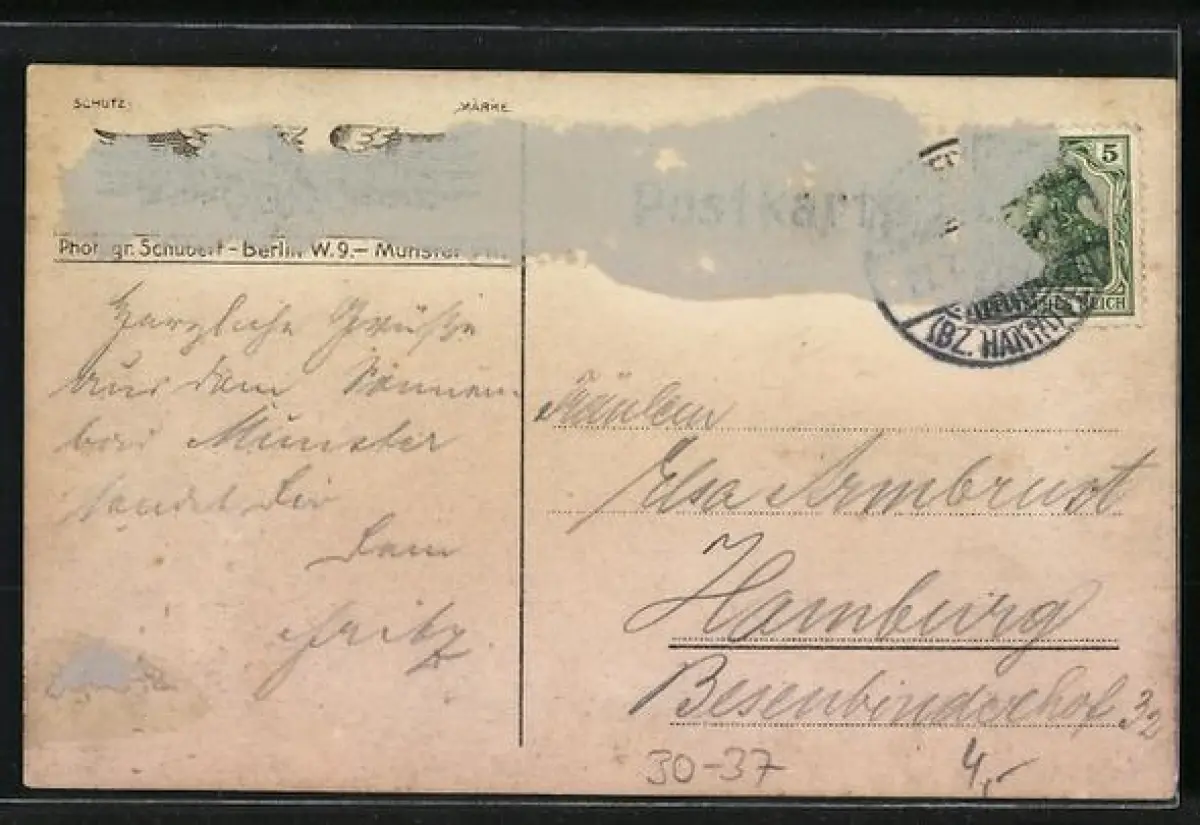 SCHUTZ- MARKE
Postkarte
Schubert - Berlin W.9. - Munster
5
REICH
(BZ. HANNO
Herzliche Grüße
aus dem Sonnen
Munster
sendet Dir
Dein
Fritz.
Fräulein
Elsa Armbrust
Hamburg
Besenbinderhof 32
30-37
4,-